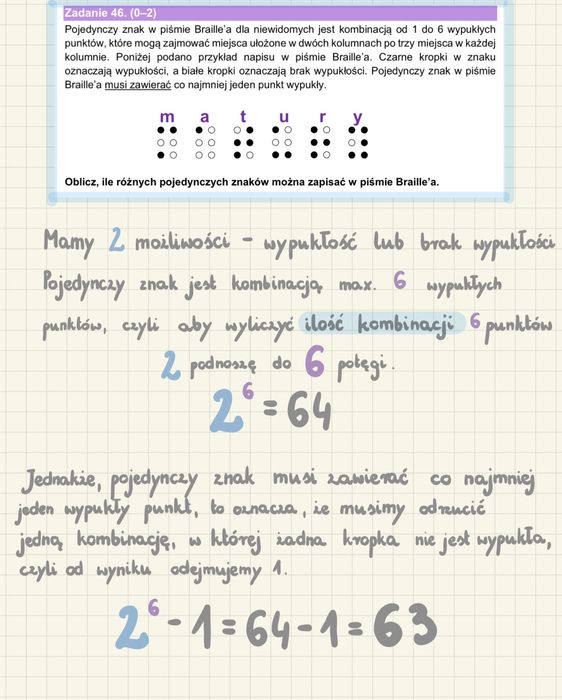 Zadanie 46. (0–2)
Pojedynczy znak w piśmie Braille'a dla niewidomych jest kombinacją od 1 do 6 wypukłych
punktów, które mogą zajmować miejsca ułożone w dwóch kolumnach po trzy miejsca w każdej
kolumnie. Poniżej podano przykład napisu w piśmie Braille'a. Czarne kropki w znaku
oznaczają wypukłości, a białe kropki oznaczają brak wypukłości. Pojedynczy znak w piśmie
Braille'a musi zawierać co najmniej jeden punkt wypukły.
m a t u r y
Oblicz, ile różnych pojedynczych znaków można zapisać w piśmie Braille'a.
Mamy 2 możliwości - wypukłość lub brak wypukłości
Pojedynczy znak jest kombinacją max. 6 wypukłych
punktów, czyli aby wyliczyć ilość kombinacji 6 punktów
2 podnoszę do 6 potęgi.
2⁶ = 64
Jednakże, pojedynczy znak musi zawierać co najmniej
jeden wypukły punkt, to oznacza, że musimy odrzucić
jedną kombinację, w której żadna kropka nie jest wypukła,
czyli od wyniku odejmujemy 1.
2⁶ - 1 = 64 - 1 = 63